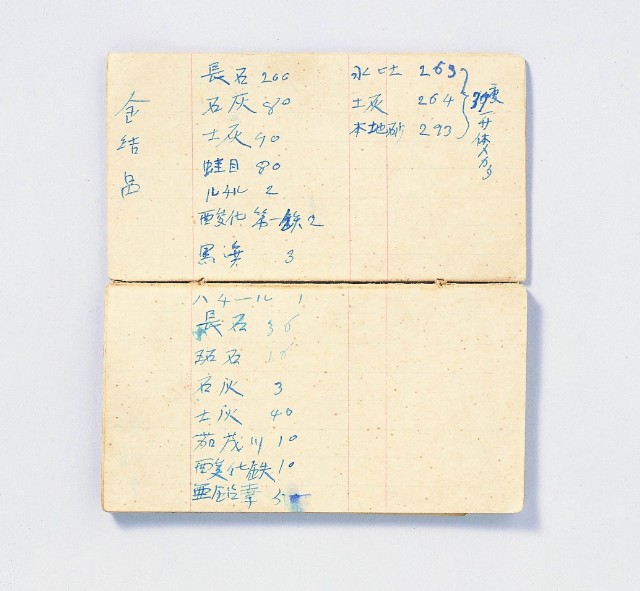 金結晶
長石 200
石灰 80
土灰 90
蛙目 80
ルチル 2
酸化第一鉄 2
黒浜 3
水土 263
土灰 264
本地砂 293
ハチール 1
長石 35
石灰 3
土灰 40
加茂川 10
酸化鉄 10
亜鉛華 5